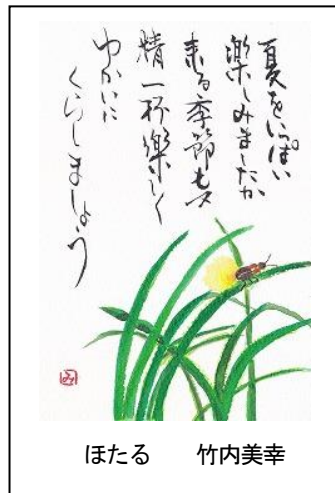 夏をいっぱい
楽しみましたか
来る季節も又
精一杯楽しく
ゆかいに
くらしましょう
み
ほたる　竹内美幸